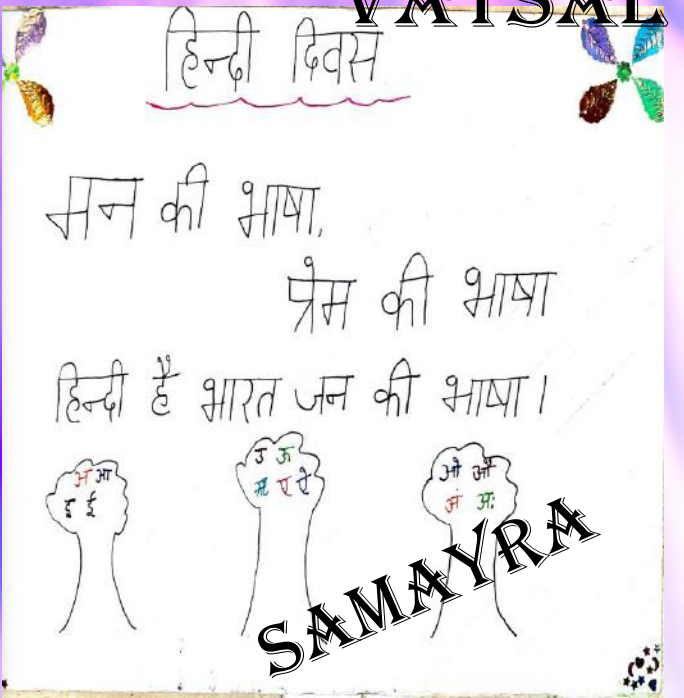 VATSAL
हिन्दी दिवस
मन की भाषा,
प्रेम की भाषा
हिन्दी है भारत जन की भाषा।
अ आ
इ ई
उ ऊ
ऋ ए ऐ
ओ औ
अं अः
SAMAYRA